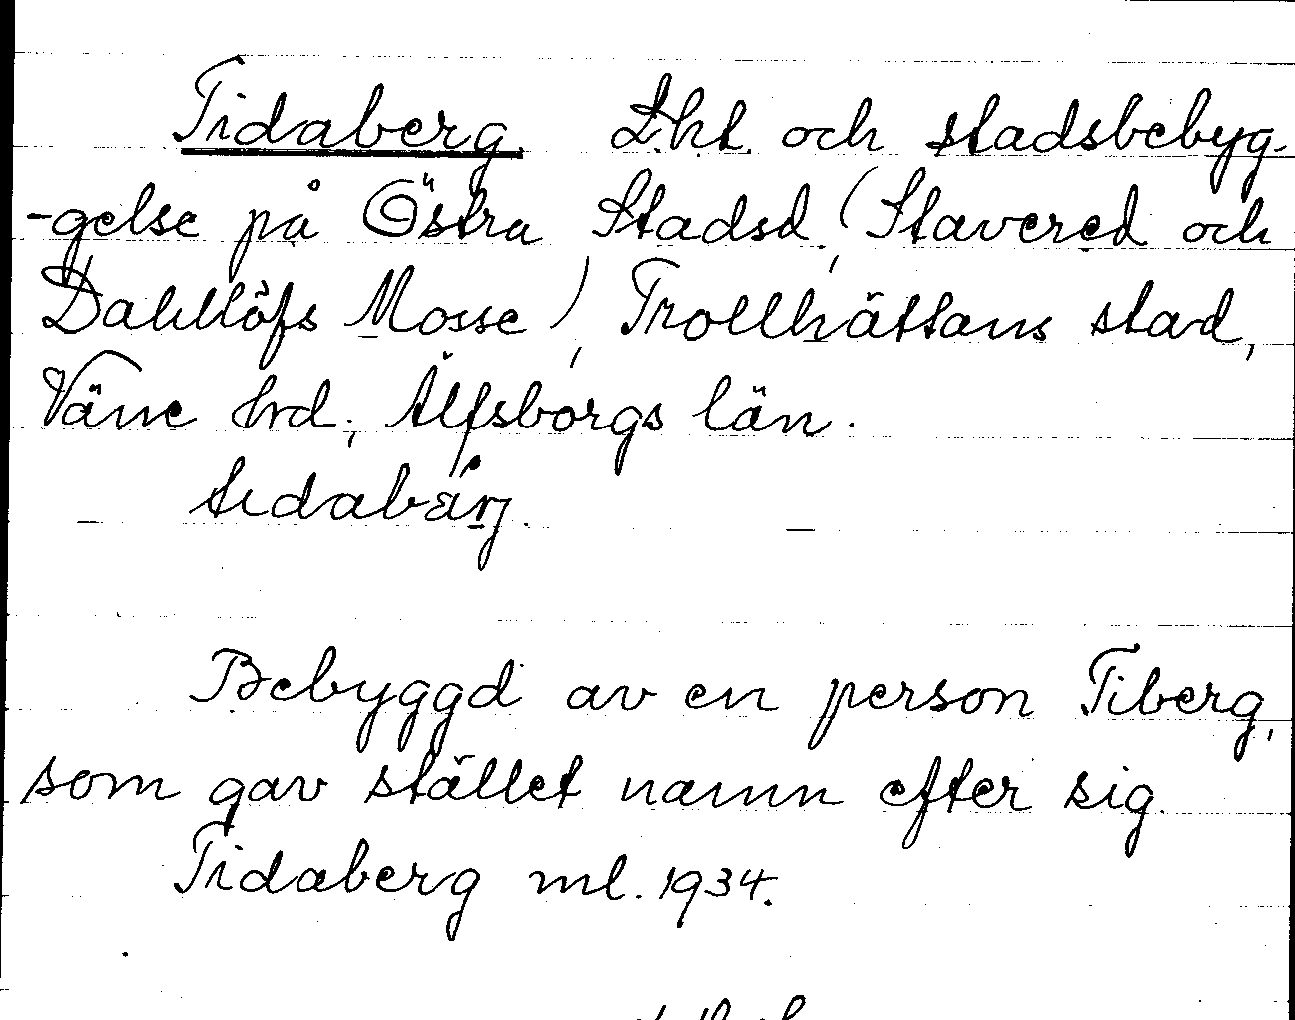 Tidaberg. L.ht. och stadsbebyg-
-gelse på Östra Stadsd. (Stavered och
Dahllöfs Mosse), Trollhättans stad,
Väne hrd, Älfsborgs län.
Bebyggd av en person Tiberg,
som gav stället namn efter sig.
Tidaberg ml. 1934.